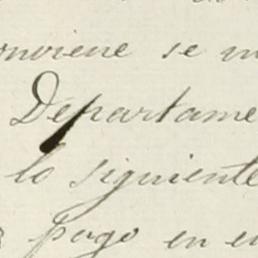 conviene se
Departame
lo siguiente
pago en